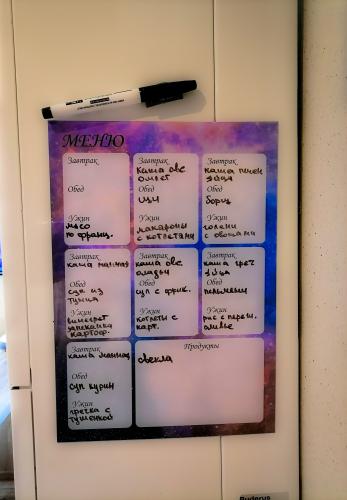 МЕНЮ
Завтрак
Обед
Ужин
мясо
по франц.
Завтрак
каша овс
омлет
Обед
щи
Ужин
макароны
с котлетами
Завтрак
каша пшен
яйца
Обед
борщ
Ужин
голени
с овощами
Завтрак
каша манная
Обед
суп из
тунца
Ужин
винегрет
запеканка
картоф.
Завтрак
каша овс
оладьи
Обед
суп с фрик.
Ужин
котлеты с
карт.
Завтрак
каша греч
яйца
Обед
пельмени
Ужин
рис с
оливье
Завтрак
каша манная
Обед
суп курин
Ужин
гречка с
тушенкой
Продукты
свекла
Buderus